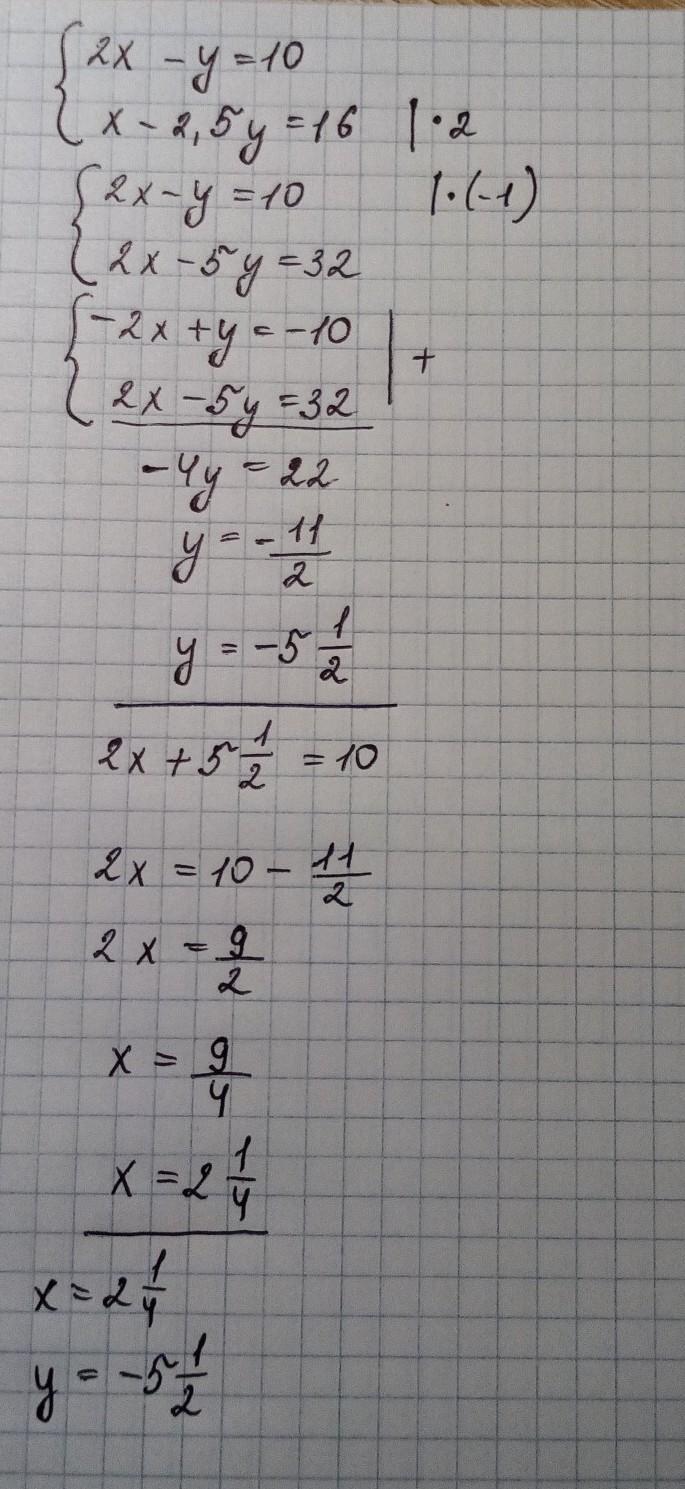 {2x - y = 10
x - 2,5y = 16 | · 2
{2x - y = 10 | · (-1)
2x - 5y = 32
{-2x + y = -10 | +
2x - 5y = 32
-4y = 22
y = -11/2
y = -5 1/2
2x + 5 1/2 = 10
2x = 10 - 11/2
2x = 9/2
x = 9/4
x = 2 1/4
x = 2 1/4
y = -5 1/2